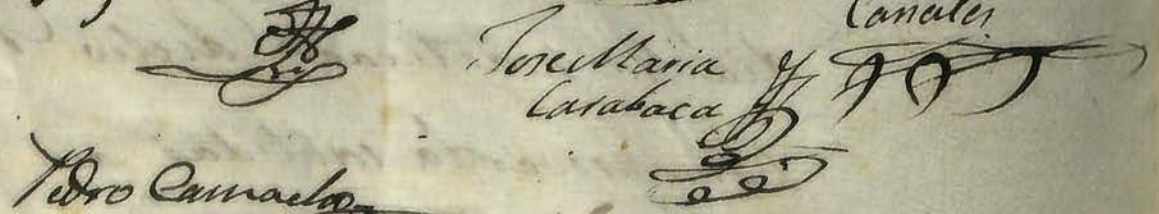 Canales
Jose Maria
Carabaca
Pedro Camacho